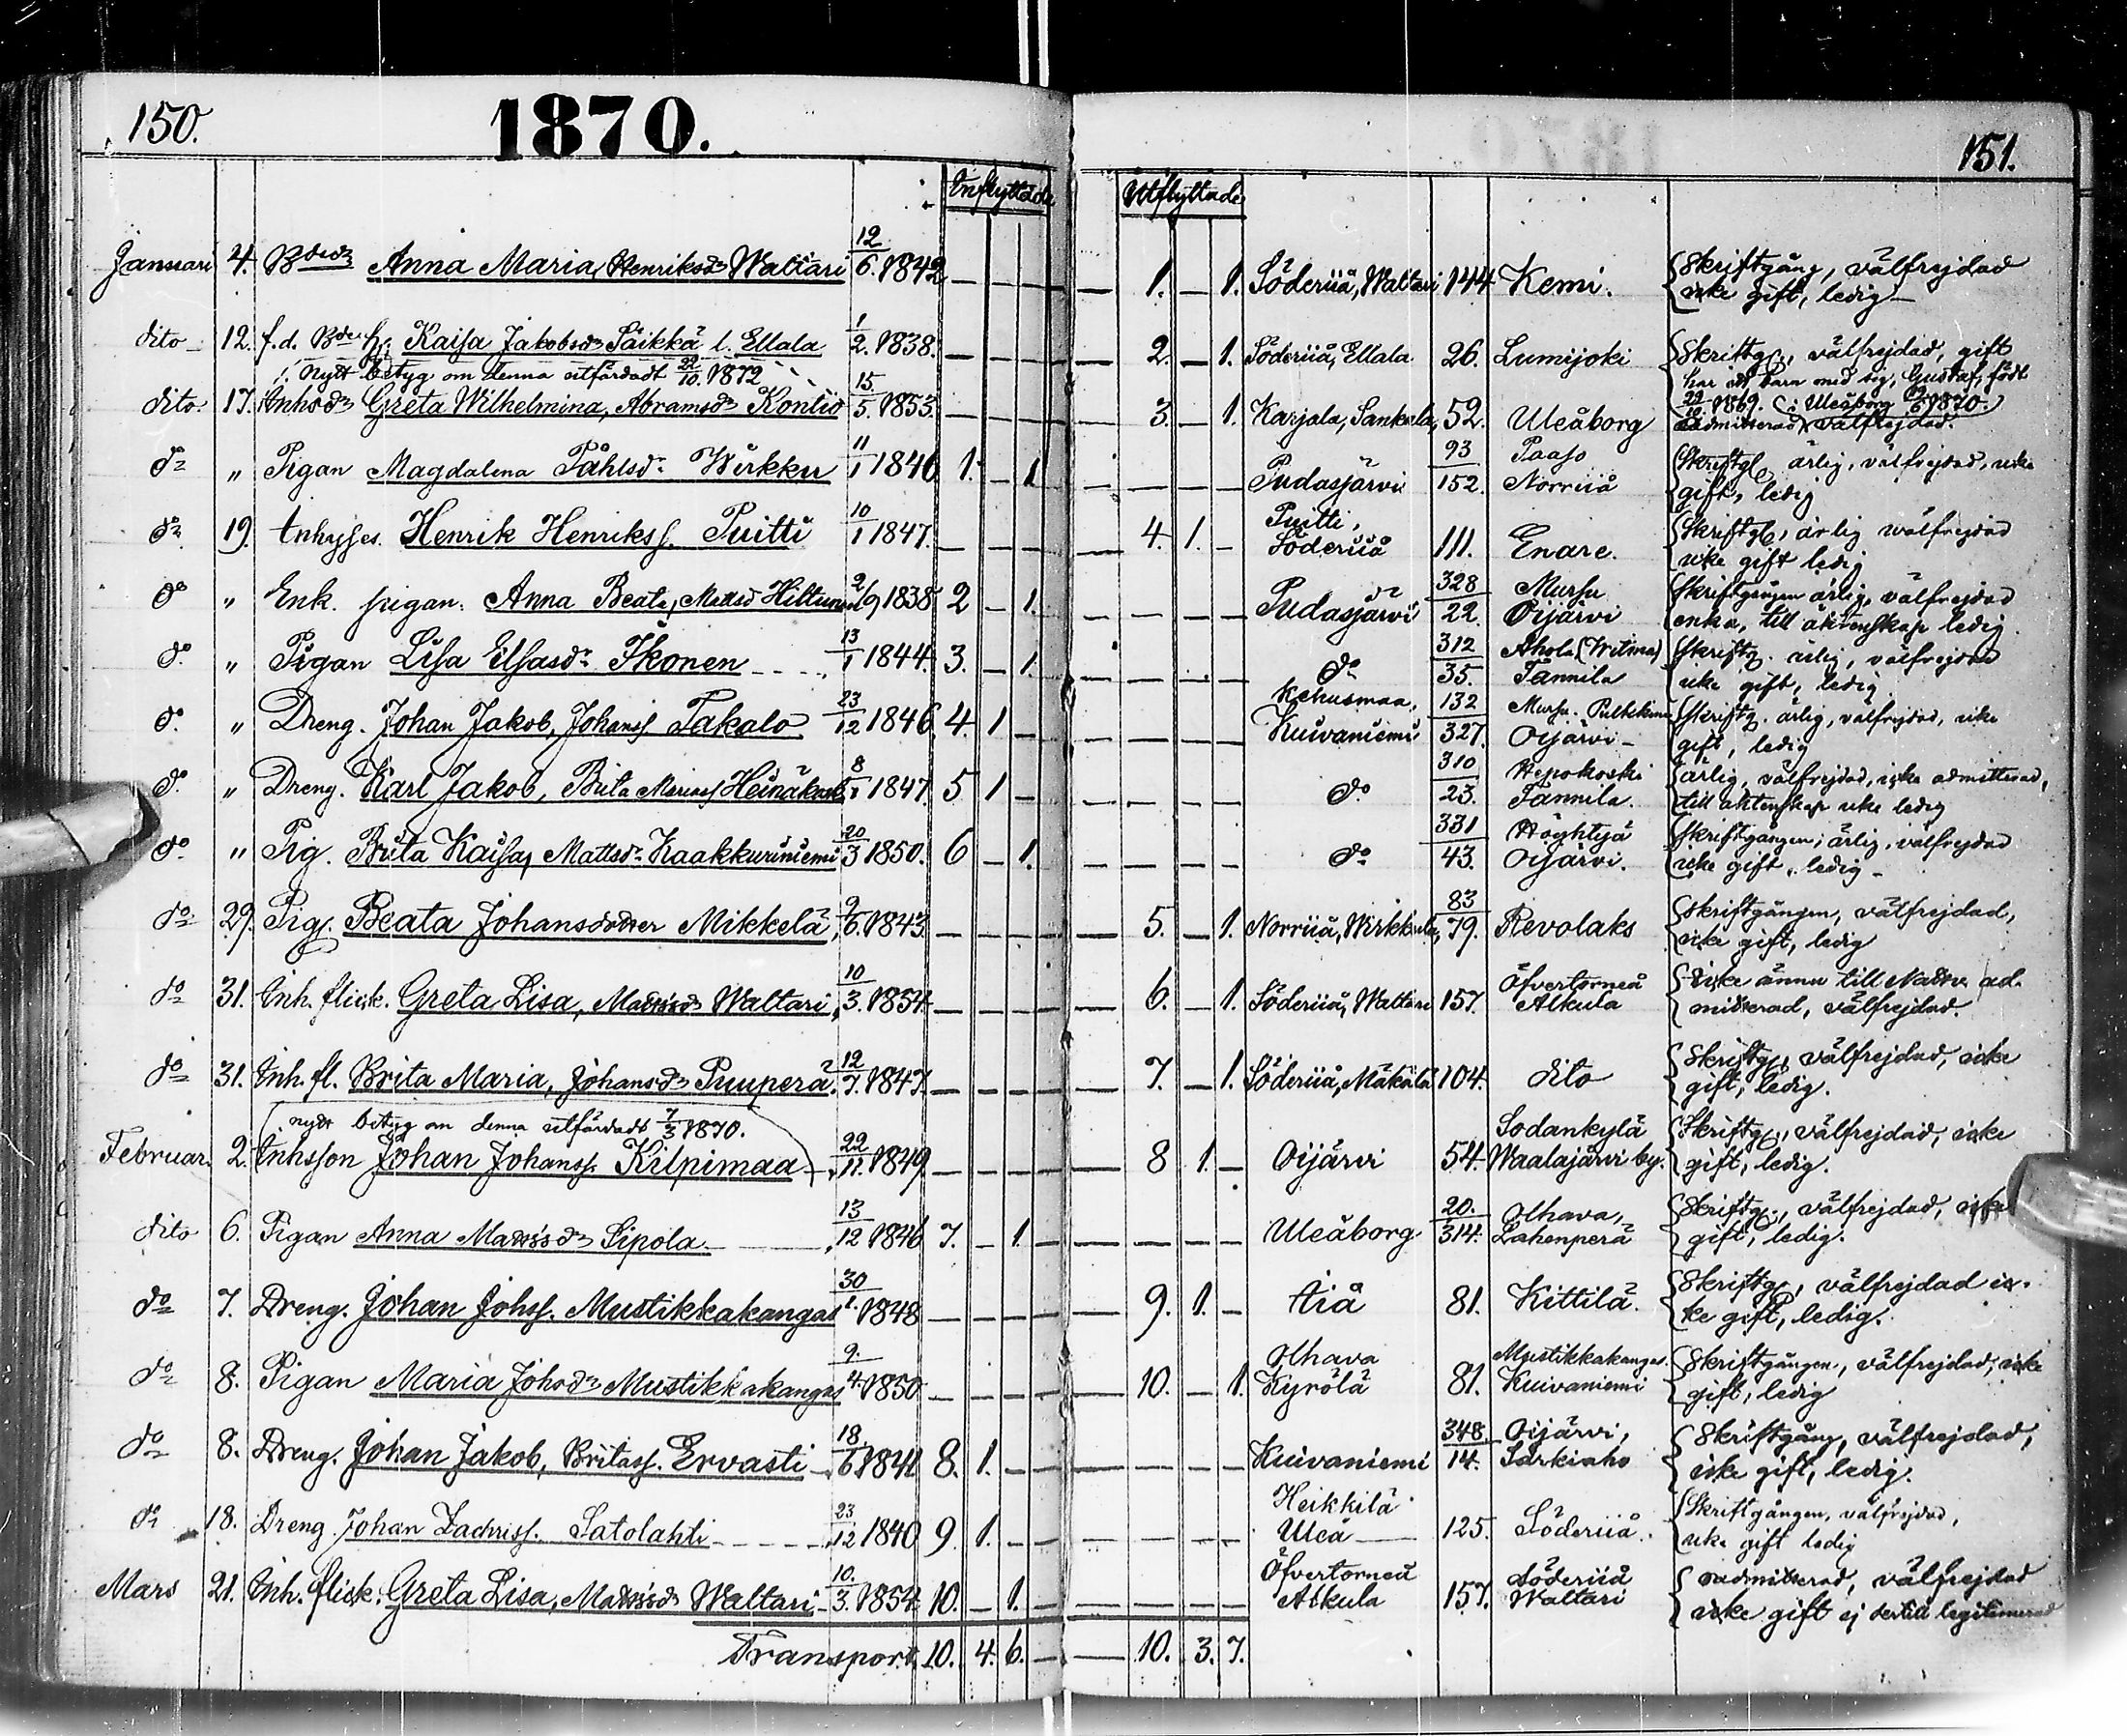 150.
1870.
151.
Inflyttade
Utflyttade
Januari 4. Anna Maria, Henriksdr Waltari 12/6. 1842 — — — — — 1. — 1. Söderiiå, Waltari 144 Kemi. Skriftgång, välfrejdad
icke gift, ledig
dito 12. f.d. Kaisa Jakobsdr Säikkä l. Ellala 1/2. 1838. — — — — — 2. — 1. Söderiiå, Ellala 26. Lumijoki Skriftg., välfrejdad, gift
nytt betyg om denna utfärdadt 22/10. 1872
har ett barn med sig, Gustaf, född
dito. 17. Inhsdr Greta Wilhelmina, Abramsdr Kontio 15./5. 1853. — — — — — 3. — 1. Karjala, Sankala, 52. Uleåborg 1869. i Uleåborg 1870.
admitterad, välfrejdad.
do " Pigan Magdalena Påhlsdr Wirkku 11/1 1846 1. — 1 — — — — Pudasjärvi 93/152. Paaso Norriiå Skriftg. ärlig, välfrejdad, icke
gift, ledig
do 19. Inhyses. Henrik Henrikss. Puitti 10/1 1847. — — — — — 4. 1. — Puitti, Söderiiå 111. Enare. Skriftg., ärlig välfrejdad
icke gift ledig
do " Enk. pigan. Anna Beata, Mattsd Hiltunen 2/9 1838 2 — 1. — — — — Pudasjärvi 328/22. Mursu Oijärvi Skriftgången ärlig, välfrejdad
enka, till äktenskap ledig.
do " Pigan Lisa Eliasdr Ikonen 13/1 1844. 3. — 1. — — — — do 312/35. Ahola (Writma) Tannila Skriftg. ärlig, välfrejdad
icke gift, ledig.
do " Dreng. Johan Jakob, Johanss Takalo 23/12 1846 4. 1 — — — — — Kehusmaa, Kuivaniemi 132/327. Mursu. Oijärvi Skriftg. ärlig, välfrejdad, icke
gift, ledig
do " Dreng. Karl Jakob, Brita Mariass 8 1847. 5 1 — — — — — do 310/23. Hepokoski Tannila. ärlig, välfrejdad, icke admitterad,
till äktenskap icke ledig
do " Pig. Brita Kaisa, Mattsdr Kaakkuriniemi 20/3 1850. 6 — 1. — — — — do 331/43. Höyhtyä Oijärvi. Skriftgången; ärlig, välfrejdad
icke gift, ledig
do 29. Pig. Beata Johansdotter Mikkelä 9/6. 1843 — — — — — 5. — 1. Norriiå, Wirkkula, 83/79. Revolaks Skriftgången, välfrejdad,
icke gift, ledig
do 31. Inh. flick. Greta Lisa, Mattsdr Waltari, 10/3. 1854. — — — — — 6. — 1. Söderiiå, Waltari 157. Öfvertorneå Alkula icke ännu till Nattv. ad-
mitterad, välfrejdad.
do 31. Inh. fl. Brita Maria, Johansdr Puuperä. 12/7. 1847. — — — — — 7. — 1. Söderiiå, Mäkälä 104. dito Skriftg., välfrejdad, icke
gift, ledig.
nytt betyg om denna utfärdadt 7/3 1870.
Februar. 2. Inhsson Johan Johanss. Kilpimaa 22/11. 1849 — — — — — 8 1. — Oijärvi 54. Sodankylä Waalajärvi by. Skriftg., välfrejdad, icke
gift, ledig.
dito 6. Pigan Anna Mattsdr Sipola 13/12 1846 7. — 1 — — — — — Uleåborg 20./314. Olhava, Lahenperä Skriftg., välfrejdad, icke
gift, ledig.
do 7. Dreng. Johan Johss. Mustikkakangas 30/1. 1848 — — — — — 9. 1. — Iiå 81. Kittilä. Skriftg., välfrejdad ic-
ke gift, ledig.
do 8. Pigan Maria Johsdr Mustikkakangas 9./4. 1850 — — — — — 10. — 1. Olhava Kyrölä 81. Mustikkakangas. Kuivaniemi Skriftgången, välfrejdad, icke
gift, ledig
do 8. Dreng. Johan Jakob, Britass. Ervasti 18./6. 1841 8. 1. — — — — — — Kuivaniemi 348./14. Oijärvi, Särkiaho Skriftgång, välfrejdad,
icke gift, ledig.
do 18. Dreng Johan Zachriss. Satolahti 23/12 1840 9. 1. — — — — — — Heikkilä Uleå 125. Söderiiå. Skriftgången, välfrejdad,
icke gift ledig
Mars 21. Inh. flick. Greta Lisa, Mattsdr Waltari 10./3. 1854 10. — 1. — — — — — Öfvertorneå Alkula 157. Söderiiå Waltari oadmitterad, välfrejdad
icke gift ej dertill legitimerad
Transport. 10. 4. 6. — — 10. 3. 7.